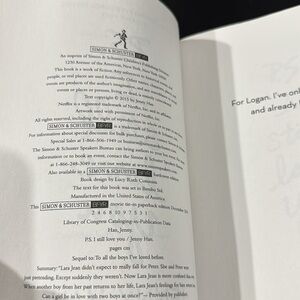 SIMON & SCHUSTER BFYR
An imprint of Simon & Schuster Children's Publishing Division
1230 Avenue of the Americas, New York, New York
This book is a work of fiction. Any references to historical
people, or real places are used fictitiously. Other names,
places and events are products of the author's imagination, and any
events or places or persons, living or dead, is
Text copyright © 2015 by Jenny Han
Netflix is a registered trademark of Netflix, Inc. and
Artwork used with permission of Netflix, Inc.
All rights reserved, including the right of reproduction in
SIMON & SCHUSTER BFYR is a trademark of Simon &
For information about special discounts for bulk purchases, please
Special Sales at 1-866-506-1949 or
The Simon & Schuster Speakers Bureau can bring authors to
or to book an event, contact the Simon & Schuster
at 1-866-248-3049 or
Also available in a SIMON & SCHUSTER BFYR hardcover edition
Book design by Lucy Ruth Cummins
The text for this book was set in Bembo Std.
Manufactured in the United States of America
This SIMON & SCHUSTER BFYR movie tie-in paperback edition December
2 4 6 8 10 9 7 5 3 1
Library of Congress Cataloging-in-Publication Data
Han, Jenny.
P.S. I still love you / Jenny Han.
pages cm
Sequel to: To all the boys I've loved before.
Summary: "Lara Jean didn't expect to really fall for Peter. She and Peter were
just pretending. Except suddenly they weren't. Now Lara Jean is more confused than
When another boy from her past returns to her life, Lara Jean's feelings for him
Can a girl be in love with two boys at once?"— Provided by publisher.
For Logan. I've only
and already